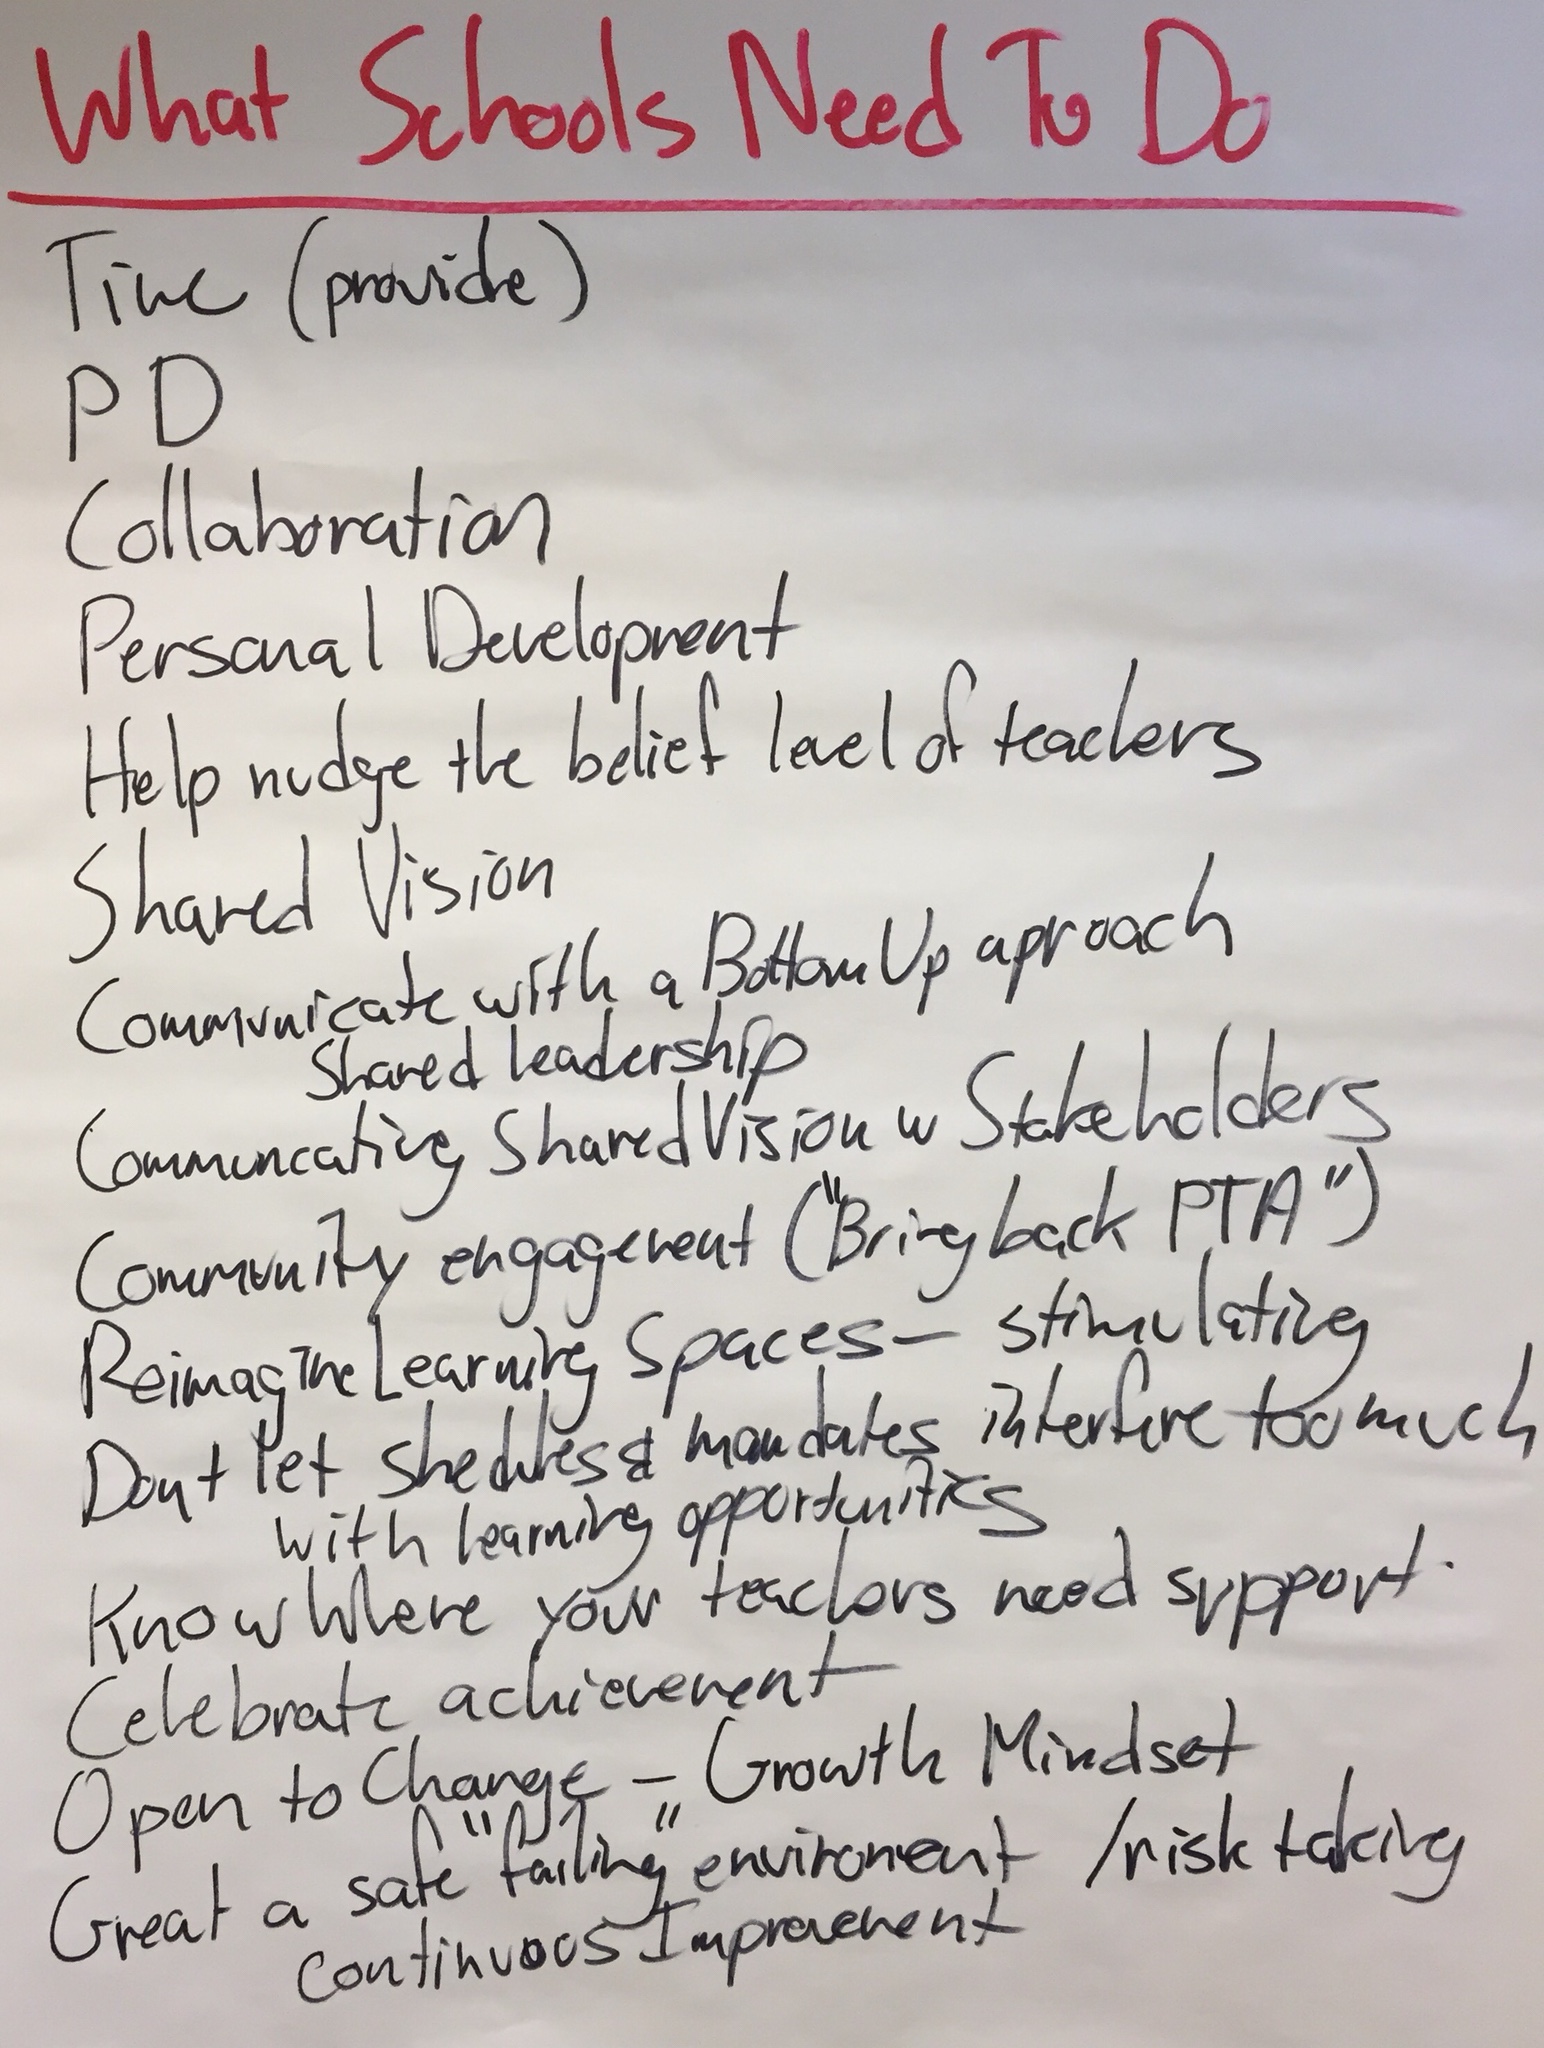 What Schools Need To Do
Time (provide)
PD
Collaboration
Personal Development
Help nudge the belief level of teachers
Shared Vision
Communicate with a Bottom Up aproach
Shared leadership
Communcating Shared Vision w Stakeholders
Community engagement ("Bring back PTA")
Reimagine Learning Spaces - stimulating
Don't let shedules & mandates interfire too much
with learning opportunities
Know Where your teachers need support.
Celebrate achievement
Open to Change - Growth Mindset
Great a safe "failing" environent /risk taking
continuous Improvement